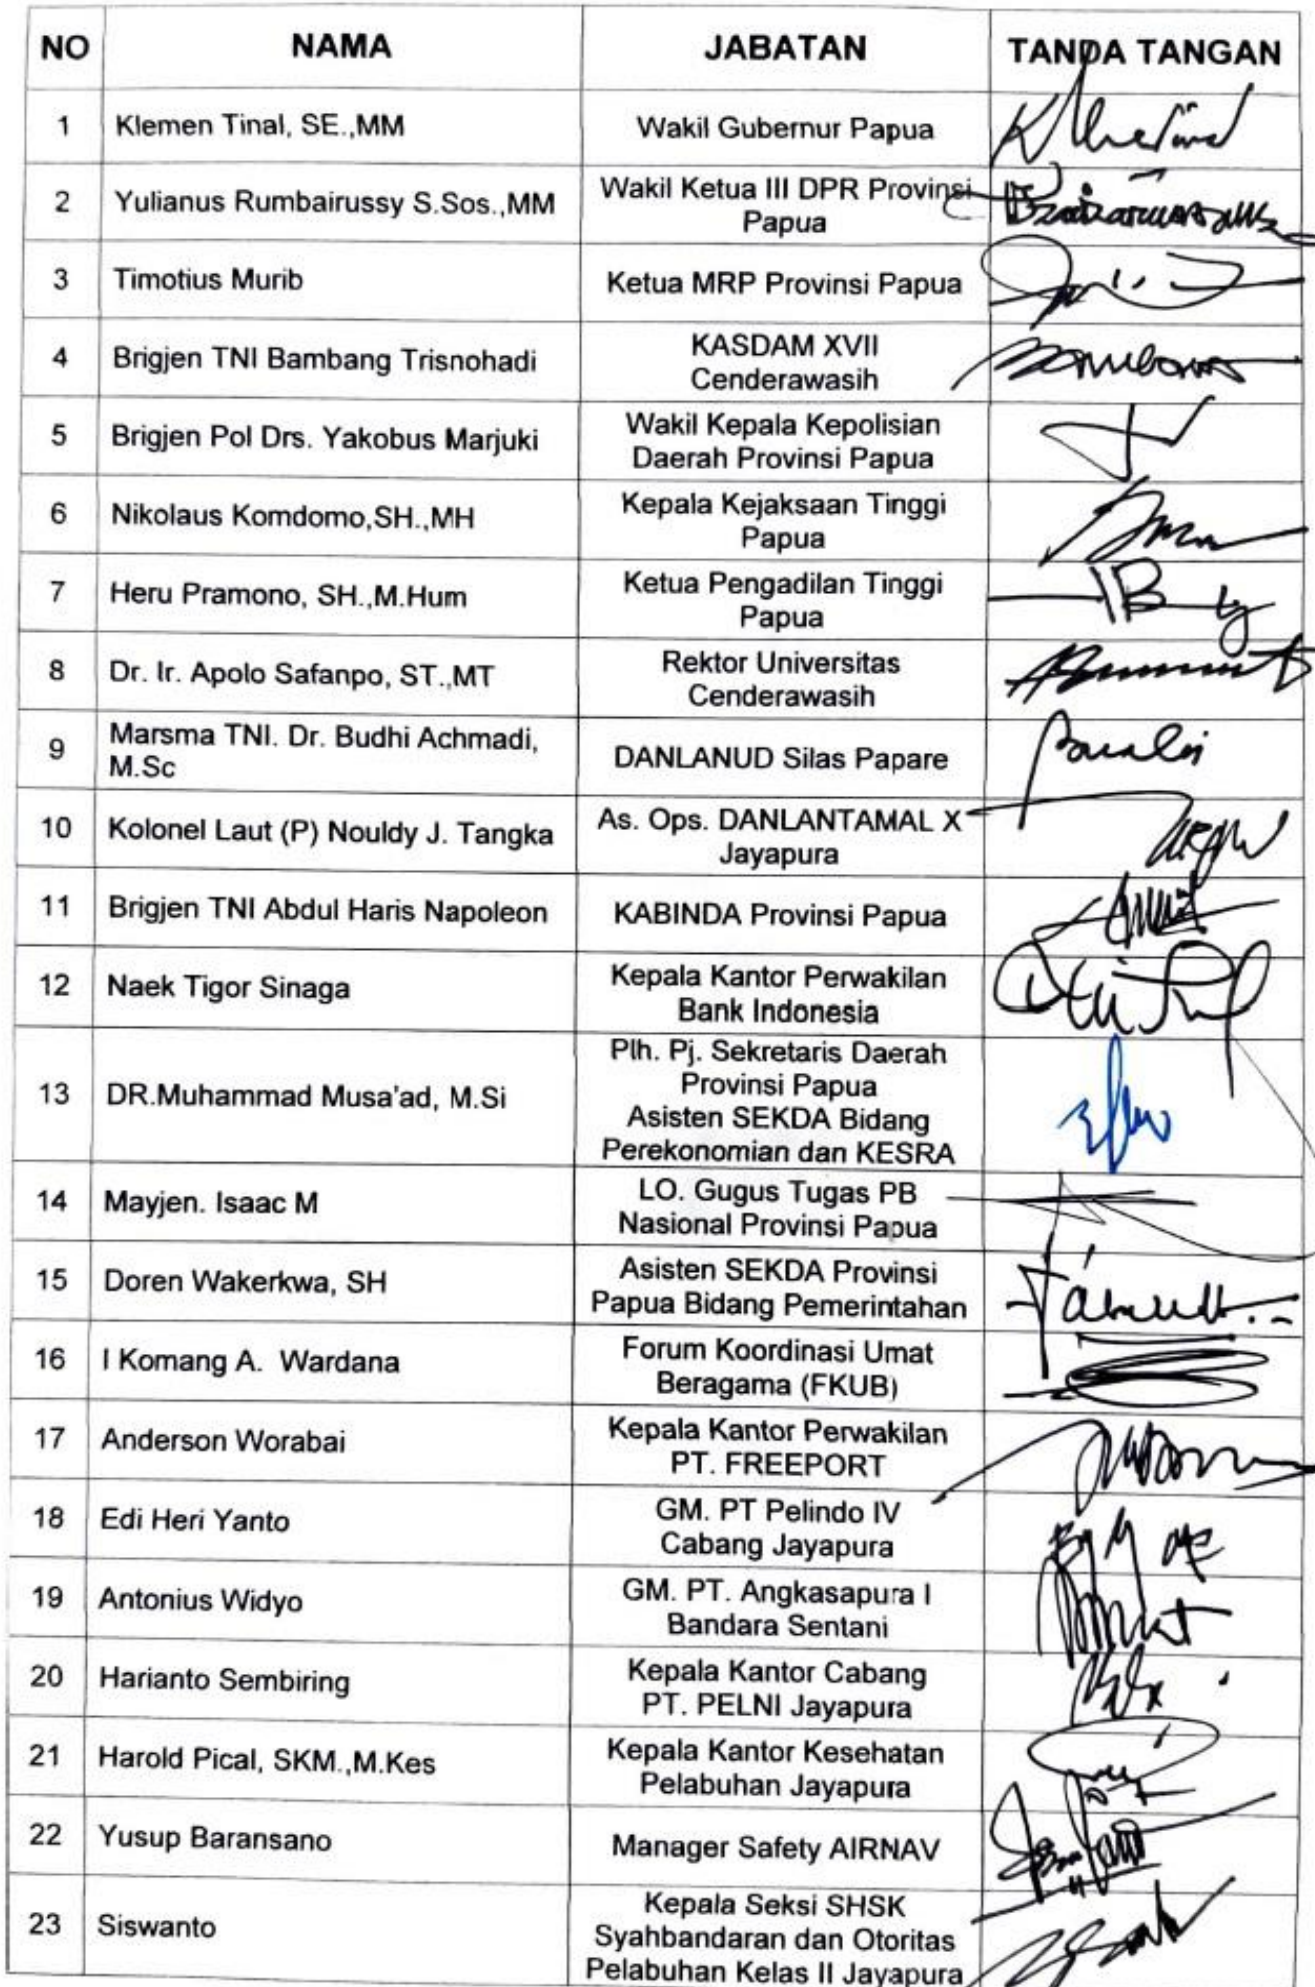 NO NAMA JABATAN TANDA TANGAN
1 Klemen Tinal, SE.,MM Wakil Gubernur Papua
2 Yulianus Rumbairussy S.Sos.,MM Wakil Ketua III DPR Provinsi
Papua
3 Timotius Murib Ketua MRP Provinsi Papua
4 Brigjen TNI Bambang Trisnohadi KASDAM XVII
Cenderawasih
5 Brigjen Pol Drs. Yakobus Marjuki Wakil Kepala Kepolisian
Daerah Provinsi Papua
6 Nikolaus Komdomo,SH.,MH Kepala Kejaksaan Tinggi
Papua
7 Heru Pramono, SH.,M.Hum Ketua Pengadilan Tinggi
Papua
8 Dr. Ir. Apolo Safanpo, ST.,MT Rektor Universitas
Cenderawasih
9 Marsma TNI. Dr. Budhi Achmadi,
M.Sc DANLANUD Silas Papare
10 Kolonel Laut (P) Nouldy J. Tangka As. Ops. DANLANTAMAL X
Jayapura
11 Brigjen TNI Abdul Haris Napoleon KABINDA Provinsi Papua
12 Naek Tigor Sinaga Kepala Kantor Perwakilan
Bank Indonesia
13 DR.Muhammad Musa'ad, M.Si Plh. Pj. Sekretaris Daerah
Provinsi Papua
Asisten SEKDA Bidang
Perekonomian dan KESRA
14 Mayjen. Isaac M LO. Gugus Tugas PB
Nasional Provinsi Papua
15 Doren Wakerkwa, SH Asisten SEKDA Provinsi
Papua Bidang Pemerintahan
16 I Komang A. Wardana Forum Koordinasi Umat
Beragama (FKUB)
17 Anderson Worabai Kepala Kantor Perwakilan
PT. FREEPORT
18 Edi Heri Yanto GM. PT Pelindo IV
Cabang Jayapura
19 Antonius Widyo GM. PT. Angkasapura I
Bandara Sentani
20 Harianto Sembiring Kepala Kantor Cabang
PT. PELNI Jayapura
21 Harold Pical, SKM.,M.Kes Kepala Kantor Kesehatan
Pelabuhan Jayapura
22 Yusup Baransano Manager Safety AIRNAV
23 Siswanto Kepala Seksi SHSK
Syahbandaran dan Otoritas
Pelabuhan Kelas II Jayapura